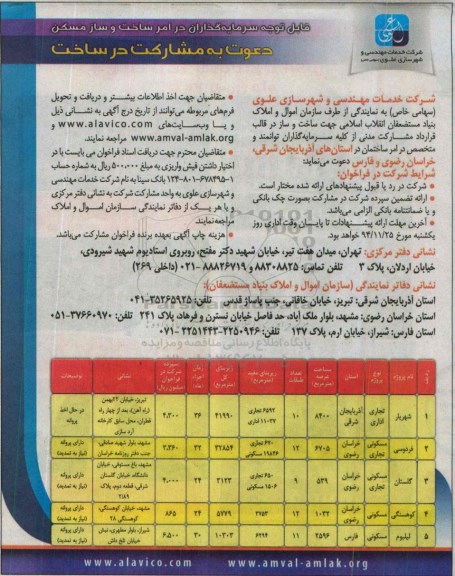 قابل توجه سرمایه‌گذاران در امر ساخت و ساز مسکن
دعوت به مشارکت در ساخت
شرکت خدمات مهندسی و
شهرسازی علوی
شرکت خدمات مهندسی و شهرسازی علوی
(سهامی خاص) به نمایندگی از طرف سازمان اموال و املاک
بنیاد مستضعفان انقلاب اسلامی جهت ساخت و ساز در قالب
قرارداد مشارکت مدنی از کلیه سرمایه‌گذاران توانمند و
متخصص در امر ساختمان در استان‌های آذربایجان شرقی،
خراسان رضوی و فارس دعوت می‌نماید:
شرایط شرکت در فراخوان:
• شرکت در رد یا قبول پیشنهادهای ارائه شده مختار است.
• ارائه تضمین سپرده شرکت در مشارکت بصورت چک بانکی
و یا ضمانتنامه بانکی الزامی می‌باشد.
• آخرین مهلت ارائه پیشنهادات تا پایان وقت اداری روز
یکشنبه مورخ ۹۴/۱۱/۲۵ خواهد بود.
• متقاضیان جهت اخذ اطلاعات بیشتر و دریافت و تحویل
فرم‌های مربوطه می‌توانند از تاریخ درج آگهی به نشانی ذیل
و یا وبسایت‌های www.alavico.com و
www.amval-amlak.org مراجعه نمایند.
• متقاضیان محترم جهت دریافت اسناد فراخوان می بایست با در
اختیار داشتن فیش واریزی به مبلغ ۵۰۰،۰۰۰ ریال به شماره حساب
۱۲۳-۸۱۰-۶۷۸۴۹۵-۱ بانک سینا به نام شرکت خدمات مهندسی
و شهرسازی علوی به واحد مشارکت شرکت به نشانی دفتر مرکزی
و یا هر یک از دفاتر نمایندگی سازمان اموال و املاک
مراجعه نمایند.
• هزینه چاپ آگهی بعهده برنده فراخوان مشارکت می‌باشد.
نشانی دفتر مرکزی: تهران، میدان هفت تیر، خیابان شهید دکتر مفتح، روبروی استادیوم شهید شیرودی،
خیابان اردلان، پلاک ۳ تلفن تماس: ۸۸۳۰۸۸۲۵ و ۸۸۸۲۶۷۱۹ - ۰۲۱ (داخلی ۲۶۹)
نشانی دفاتر نمایندگی (سازمان اموال و املاک بنیاد مستضعفان):
استان آذربایجان شرقی: تبریز، خیابان خاقانی، جنب پاساژ قدس تلفن: ۳۵۲۶۵۹۲۵-۰۴۱
استان خراسان رضوی: مشهد، بلوار ملک آباد، حد فاصل خیابان نسترن و فرهاد، پلاک ۲۴۱ تلفن: ۳۷۶۶۰۹۷۰-۰۵۱
استان فارس: شیراز، خیابان ارم، پلاک ۱۳۷ تلفن: ۳۲۲۵۰۹۴۶-۳۲۲۵۱۴۴۳ - ۰۷۱
ردیف نام پروژه نوع پروژه استان مساحت عرصه (مترمربع) تعداد طبقات زیربنای مفید (مترمربع) زیربنای کل (مترمربع) مدت اجرا (ماه) سپرده شرکت در فراخوان (میلیون ریال) نشانی توضیحات
۱ شهریار تجاری اداری آذربایجان شرقی ۸۴۰۰ ۱۰ ۶۵۹۲ تجاری ۱۱۰۲۷ اداری ۴۱۹۹۰ ۳۶ ۴،۳۰۰ تبریز، خیابان ۲۲بهمن (راه آهن)، بعد از چهار راه قطران، محل سابق کارخانه آرد سازی در حال اخذ پروانه
۲ فردوسی مسکونی تجاری خراسان رضوی ۶۷۰۵ ۱۲ ۴۷۰ تجاری ۱۹۸۴۶ مسکونی ۳۲۸۵۴ ۳۲ ۳،۳۶۰ مشهد، بلوار شهید صادقی، جنب دفتر روزنامه خراسان دارای پروانه (نیاز به تمدید)
۳ گلستان مسکونی تجاری خراسان رضوی ۵۳۹ ۹ ۴۵۰ تجاری ۱۵۰۶ مسکونی ۳۱۲۳ ۲۴ ۴،۰۰۰ مشهد، باغ مستوفی، خیابان دانشگاه، خیابان گلستان شرقی، قطعه دوم، پلاک ۲۱۸۹ دارای پروانه (نیاز به تمدید)
۴ کوهسنگی مسکونی خراسان رضوی ۱۰۳۲ ۱۲ ۳۷۵۳ ۵۷۷۹ ۲۴ ۸۶۵ مشهد، خیابان کوهسنگی، کوهسنگی ۲۸ دارای پروانه (نیاز به تمدید)
۵ لیلیوم مسکونی فارس ۲۵۹۶ ۱۱ ۶۲۹۴ ۱۰۳۰۳ ۳۰ ۶،۵۰۰ شیراز، بلوار مطهری، نبش خیابان تلخ داش دارای پروانه (نیاز به تمدید)
www.alavico.com www.amval-amlak.org